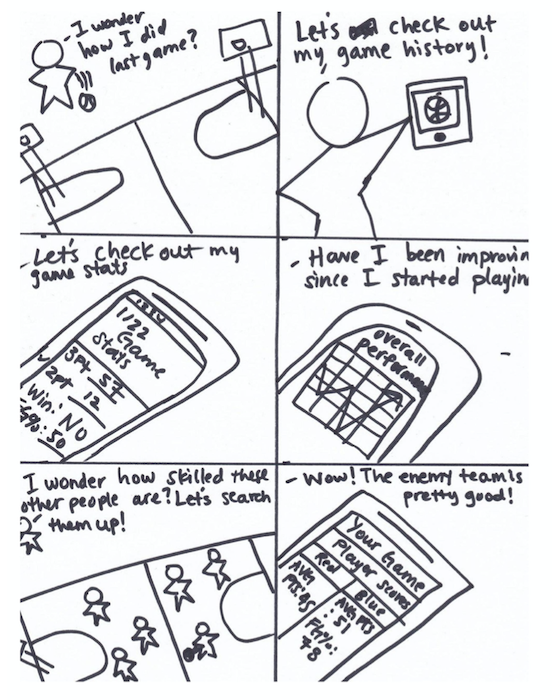 - I wonder
how I did
last game?
Let's check out
my game history!
- Let's check out my
game stats
1122
Game
Stats
3pt
2pt 12
Win: NO
%: 50
- Have I been improvin
since I started playin
overall
performan
I wonder how skilled these
other people are? Let's search
them up!
- Wow! The enemy team is
pretty good!
Your Game
Player scores
Red Blue
AVG
PTS: 45
AVG PTS
: 51
FG%:
78